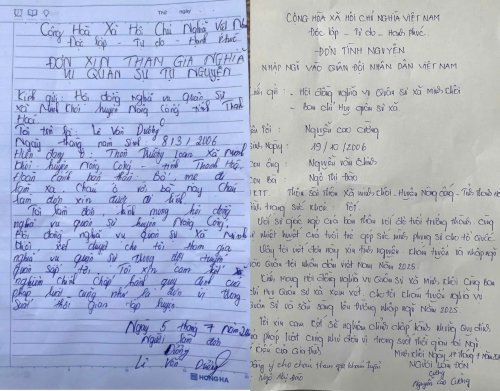 Thứ ngày
Cộng Hoà Xã Hội Chủ Nghĩa Việt Nam
Độc lập - Tự do - Hạnh Phúc
ĐƠN XIN THAM GIA NGHĨA
VỤ QUÂN SỰ TỰ NGUYỆN
Kính gửi: Hội đồng nghĩa vụ quân sự
xã Minh Khôi, huyện Nông Cống, tỉnh Thanh
Hoá
Tôi tên là: Lê Văn Dương
Ngày tháng năm sinh 8/3/2006
Hiện đang ở: Thôn Thường xã Minh
Khôi, huyện Nông Cống - tỉnh Thanh Hoá
Hoàn cảnh bản thân: Bố, mẹ đi
làm xa. Cháu ở với bà nay cháu
làm đơn xin được đi
Tôi làm đơn kính mong hội đồng
nghĩa vụ quân sự huyện Nông Cống,
Hội đồng nghĩa vụ quân sự xã Minh
Khôi xét duyệt cho tôi tham gia
nghĩa vụ quân sự trong đợt tuyển
quân sắp tới. Tôi xin cam kết
nghiêm chỉnh chấp hành quy định của
pháp luật cũng như là đơn vị trong
suốt thời gian tại huyện
Ngày 5 tháng 7 năm
Người làm đơn
Dương
Lê Văn Dương
HONG HA
CỘNG HÒA XÃ HỘI CHỦ NGHĨA VIỆT NAM
Độc lập - Tự do - Hạnh phúc
ĐƠN TÌNH NGUYỆN
NHẬP NGŨ VÀO QUÂN ĐỘI NHÂN DÂN VIỆT NAM
gửi: - Hội đồng nghĩa vụ Quân sự xã Minh Khôi
- Ban chỉ huy quân sự xã
Tôi: Nguyễn Cao Cường
Sinh Ngày: 19/10/2006
Con Ông Nguyễn Văn
Con Bà Ngô Thị Đào
Thôn xã Minh Khôi, Huyện Nông Cống - Tỉnh Thanh Hoá
trạng sức khoẻ: Tốt
Với sự giác ngộ của bản thân với lí tưởng thanh cùng
nhiệt huyết của tuổi trẻ góp sức mình phụng sự cho tổ Quốc.
Vậy tôi viết đơn này xin tình nguyện tham tuyển và nhập ngũ
vào Quân đội nhân dân Việt Nam Năm 2025
Kính mong Hội đồng nghĩa vụ Quân sự xã Minh Khôi Cùng Ban
chỉ Huy Quân sự xã xem xét, cho tôi tham tuyển nghĩa vụ
Quân sự và sẵn sàng lên đường nhập ngũ Năm 2025
Tôi xin cam kết sẽ nghiêm chỉnh chấp hành những Quy định
của pháp luật cũng như đơn vị trong suốt thời gian tại Ngũ
kiến Của Gia đình Minh Khôi Ngày tháng 7 năm
NGƯỜI LÀM ĐƠN
Cường
ý cho tham gia khám tuyển Nguyễn Cao Cường
Ngô Thị Đào